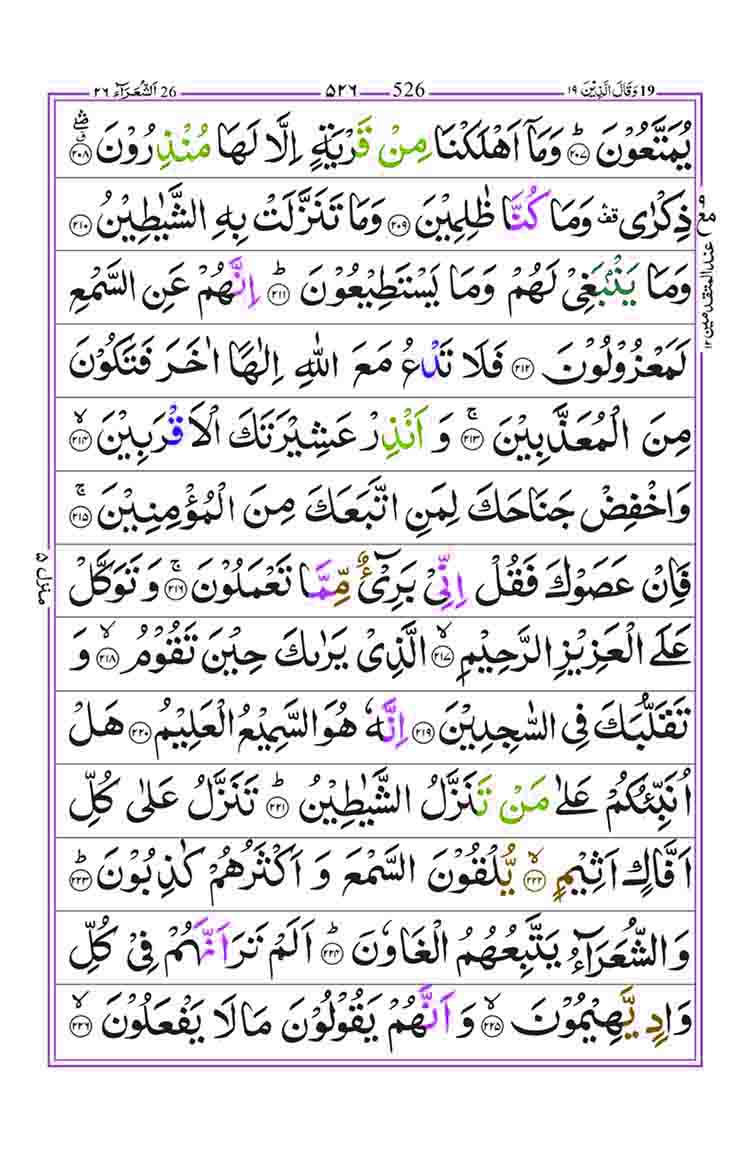 19 وَقَالَ الَّذِيْنَ ١٩ 526 ٥٢٦ 26 اَلشُّعَرَآء ٢٦
يُمَتَّعُوْنَ ؕ‏ ٢٠٧ وَمَاۤ اَهْلَكْنَا مِنْ قَرْيَةٍ اِلَّا لَهَا مُنْذِرُوْنَ ٢٠٨
ذِكْرٰى ۛ وَمَا كُنَّا ظٰلِمِيْنَ ٢٠٩ وَمَا تَنَزَّلَتْ بِهِ الشَّيٰطِيْنُ ٢١٠
وَمَا يَنْۢبَغِىْ لَهُمْ وَمَا يَسْتَطِيْعُوْنَ ؕ ٢١١ اِنَّهُمْ عَنِ السَّمْعِ
لَمَعْزُوْلُوْنَ ٢١٢ فَلَا تَدْعُ مَعَ اللّٰهِ اِلٰهًا اٰخَرَ فَتَكُوْنَ
مِنَ الْمُعَذَّبِيْنَ ۚ ٢١٣ وَ اَنْذِرْ عَشِيْرَتَكَ الْاَقْرَبِيْنَ ۙ ٢١٤
وَاخْفِضْ جَنَاحَكَ لِمَنِ اتَّبَعَكَ مِنَ الْمُؤْمِنِيْنَ ۚ ٢١٥
فَاِنْ عَصَوْكَ فَقُلْ اِنِّىْ بَرِىْٓءٌ مِّمَّا تَعْمَلُوْنَ ۚ ٢١٦ وَ تَوَكَّلْ
عَلَى الْعَزِيْزِ الرَّحِيْمِ ۙ ٢١٧ الَّذِىْ يَرٰىكَ حِيْنَ تَقُوْمُ ۙ ٢١٨ وَ
تَقَلُّبَكَ فِى السّٰجِدِيْنَ ٢١٩ اِنَّهٗ هُوَ السَّمِيْعُ الْعَلِيْمُ ٢٢٠ هَلْ
اُنَبِّئُكُمْ عَلٰى مَنْ تَنَزَّلُ الشَّيٰطِيْنُ ؕ ٢٢١ تَنَزَّلُ عَلٰى كُلِّ
اَفَّاكٍ اَثِيْمٍ ۙ ٢٢٢ يُّلْقُوْنَ السَّمْعَ وَ اَكْثَرُهُمْ كٰذِبُوْنَ ؕ ٢٢٣
وَالشُّعَرَآءُ يَتَّبِعُهُمُ الْغَاوٗنَ ؕ ٢٢٤ اَلَمْ تَرَ اَنَّهُمْ فِىْ كُلِّ
وَادٍ يَّهِيْمُوْنَ ۙ ٢٢٥ وَ اَنَّهُمْ يَقُوْلُوْنَ مَا لَا يَفْعَلُوْنَ ۙ ٢٢٦
مع
عند المتقدمين ١٢
منزل ٥